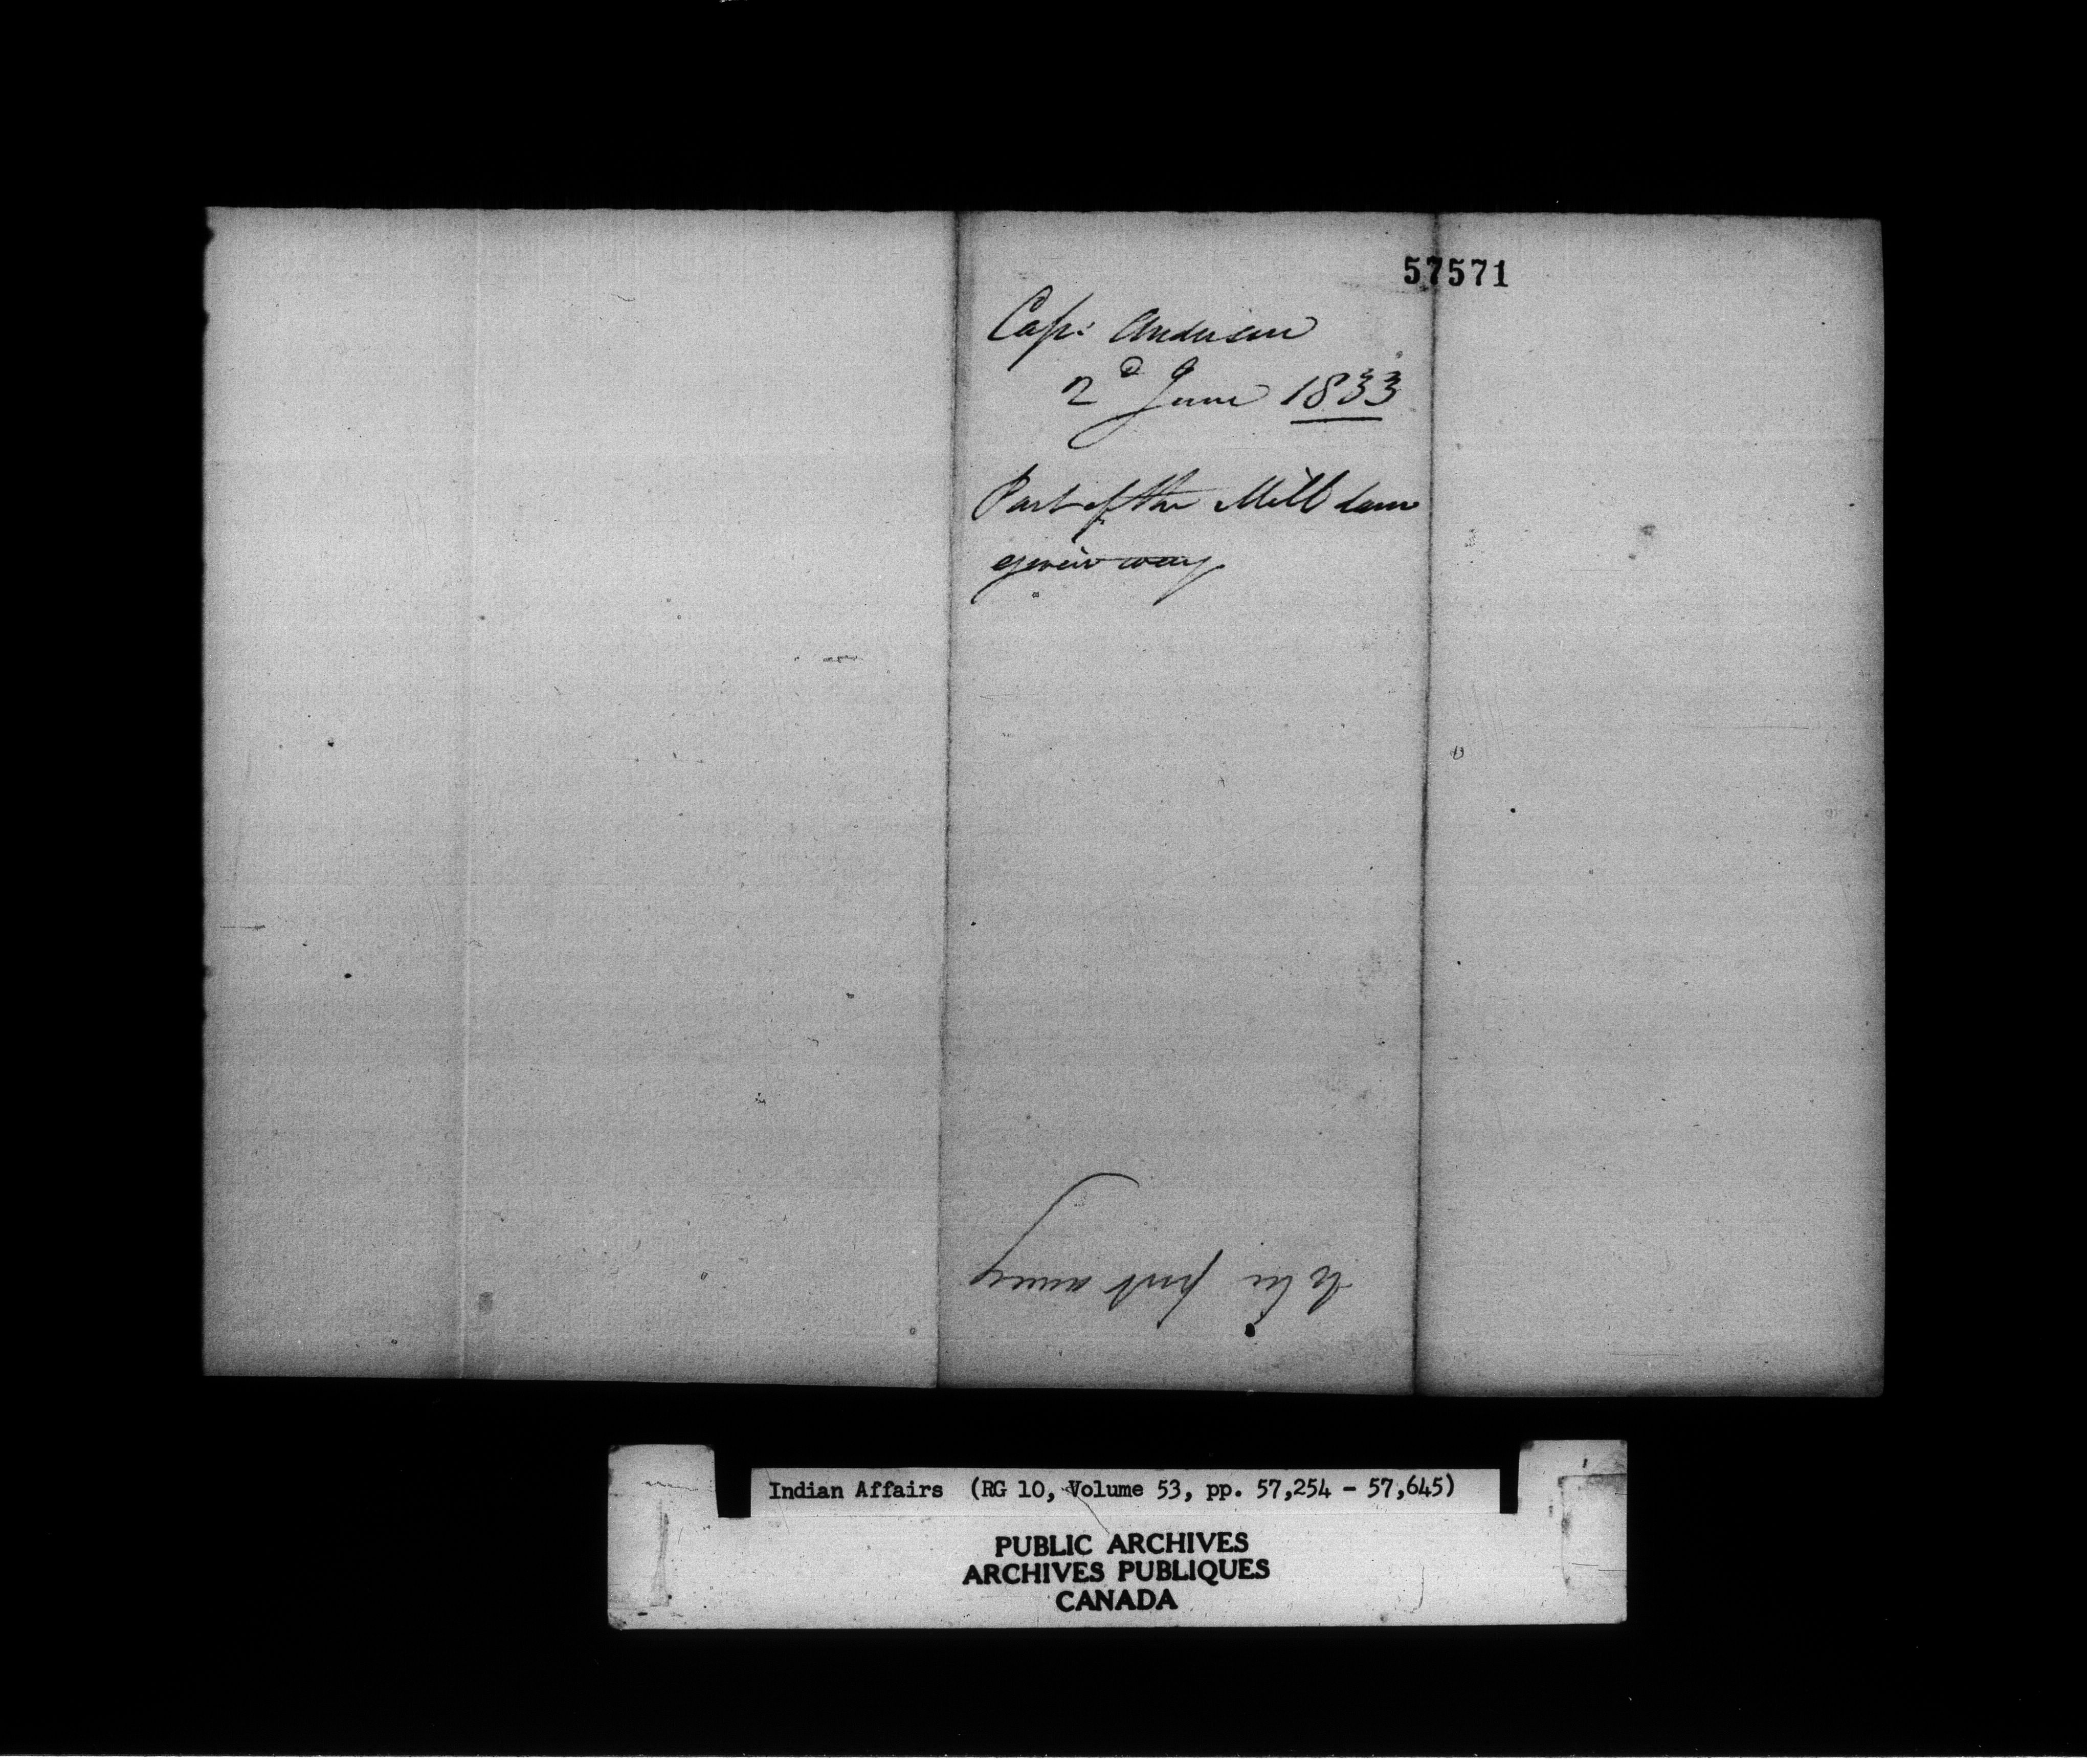 57571
Cap: Anderson
2d June 1833
Part of the Mill dam
given way
to be put away
Indian Affairs (RG 10, Volume 53, pp. 57,254 - 57,645)
PUBLIC ARCHIVES
ARCHIVES PUBLIQUES
CANADA